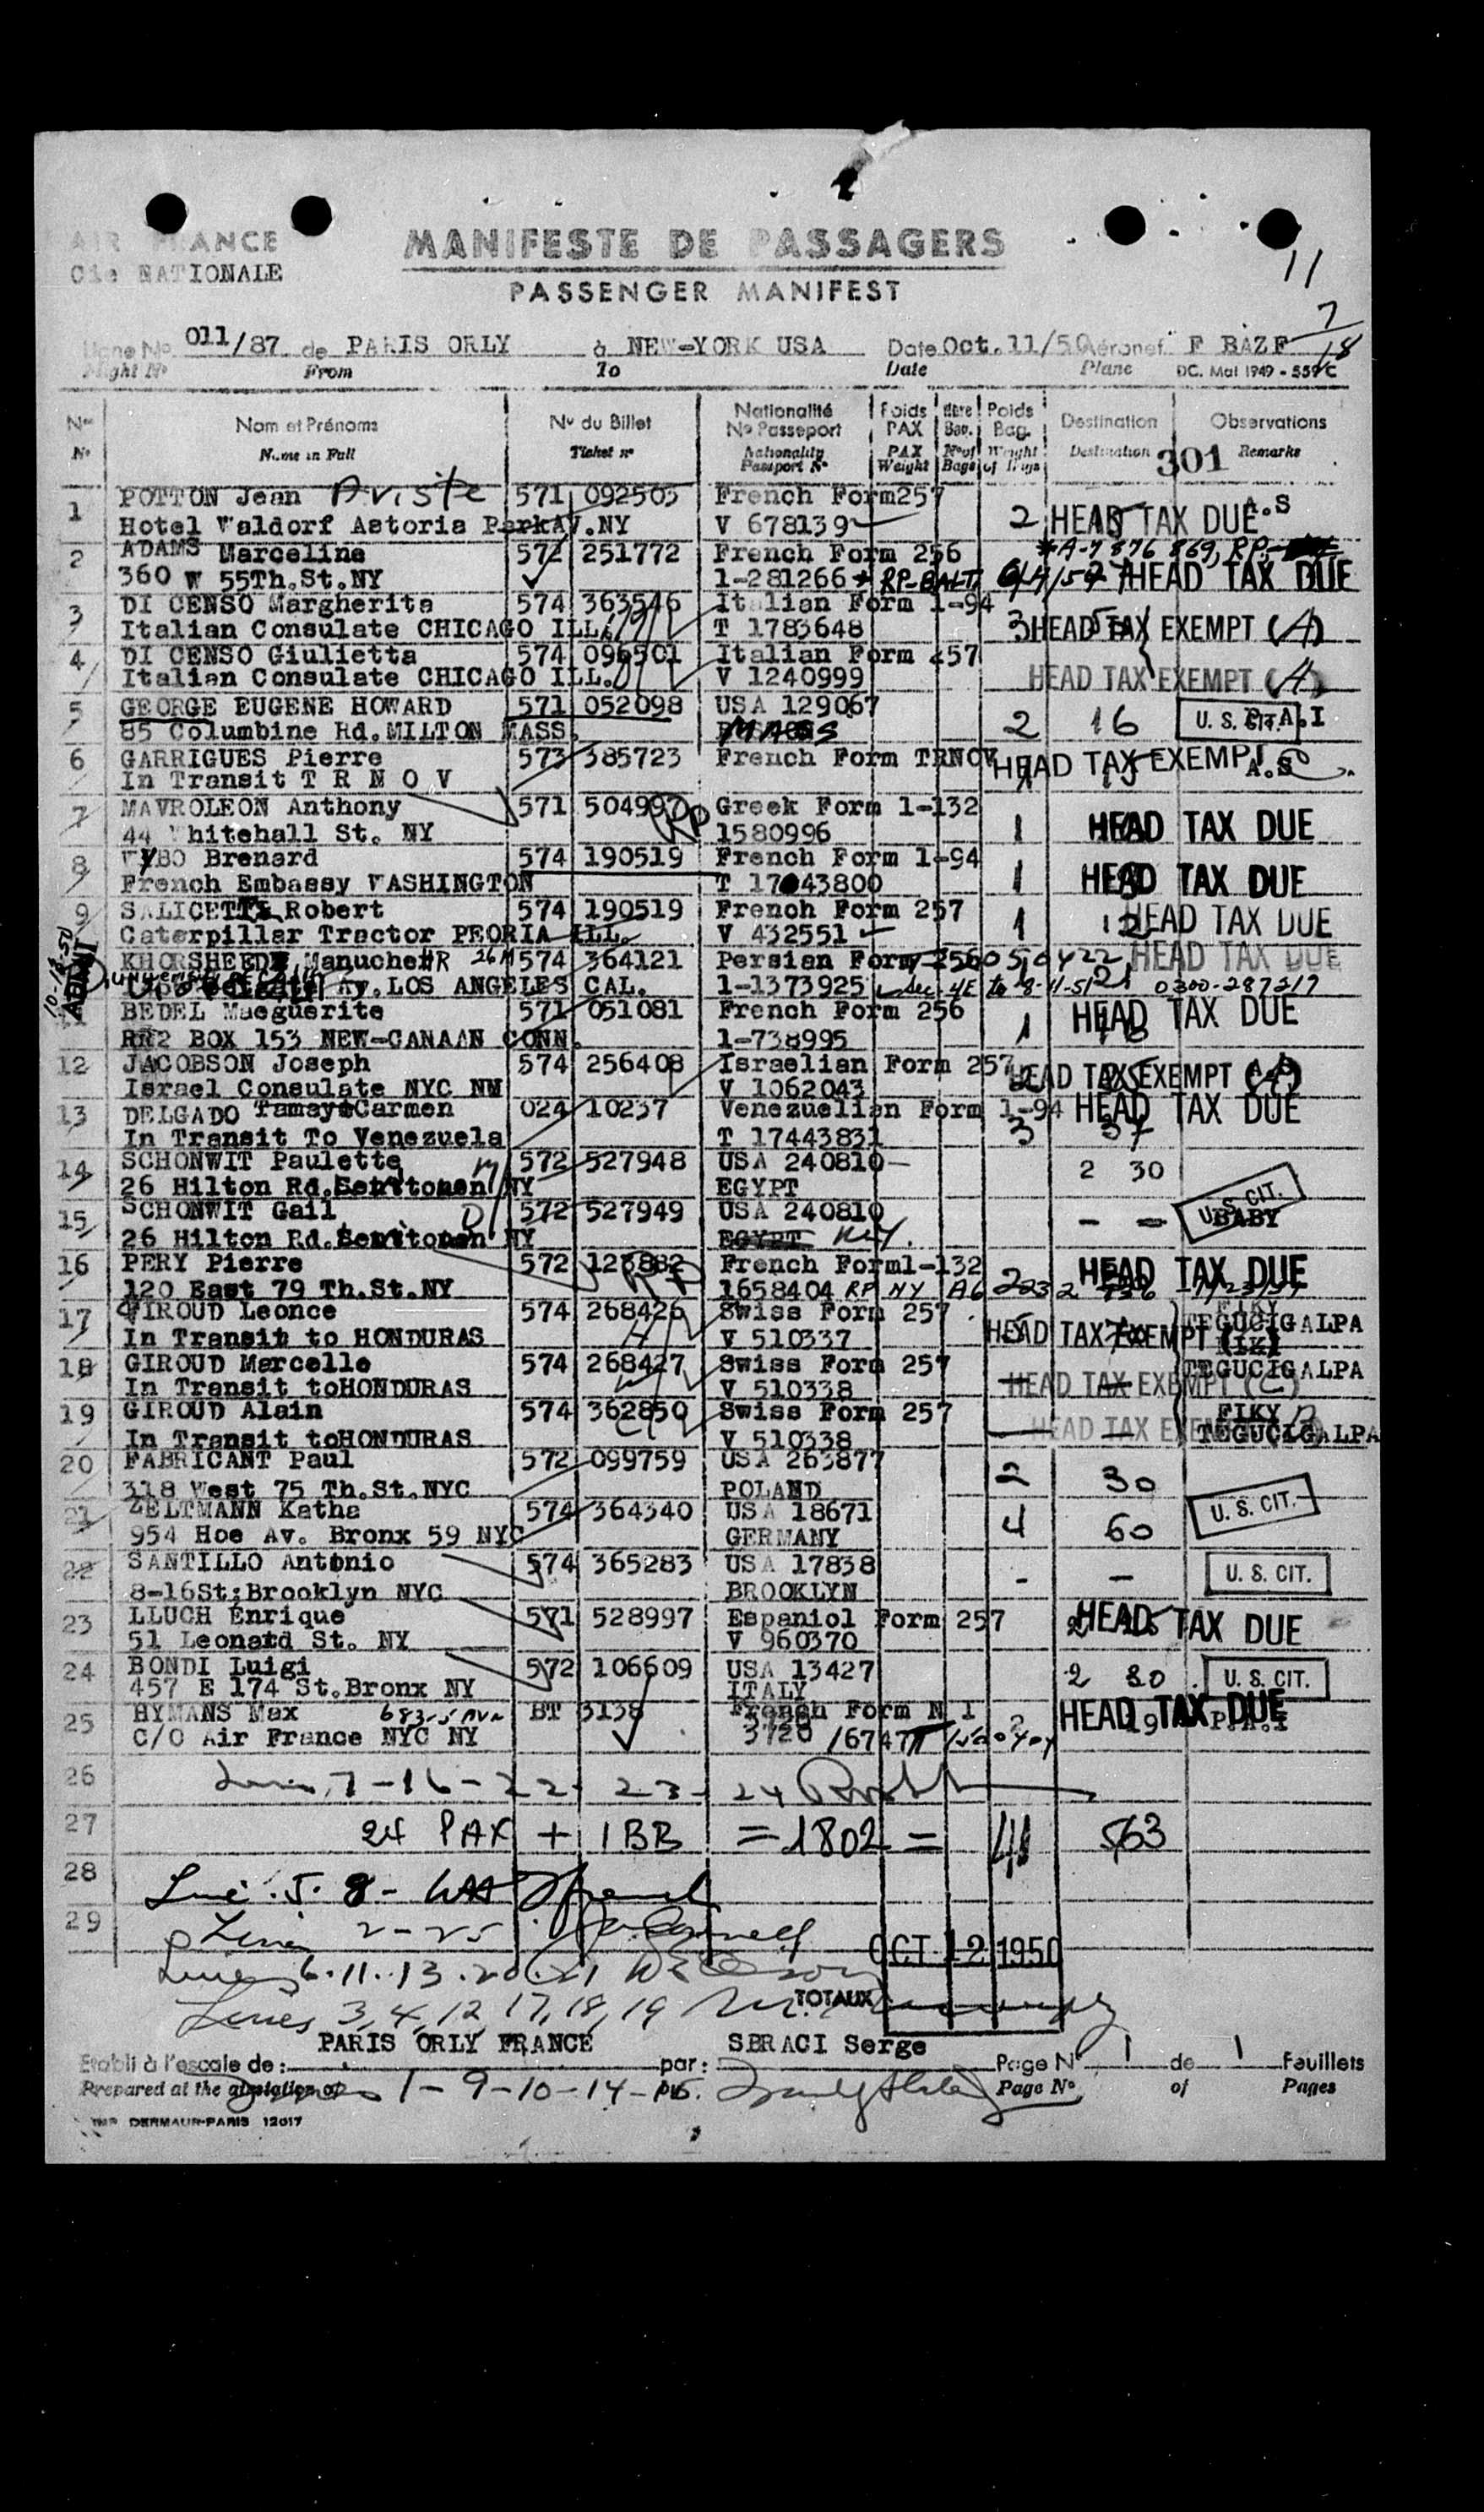 AIR FRANCE
Cie NATIONALE
MANIFESTE DE PASSAGERS
PASSENGER MANIFEST
11
7/18
Ligne No 011/87 de PARIS ORLY à NEW-YORK USA Date Oct.11/50 Aéronef F BAZF
Flight No From To Date Plane DC. Mai 1949 - 559/C
Nos Nom et Prénoms No du Billet Nationalité No Passeport Poids PAX Nbre Bag. Poids Bag. Destination Observations
No Name in Full Ticket no Nationality Passport No PAX Weight No of Bags Weight of Bags Destination 301 Remarks
1 POTTON Jean 571 092503 French Form257 A.S
Hotel Waldorf Astoria ParkAV.NY V 678139 2 HEAD TAX DUE
2 ADAMS Marceline 572 251772 French Form 256 *A-7 876 869, RP
360 W 55Th.St.NY 1-281266 * RP-BALT. HEAD TAX DUE
3 DI CENSO Margherita 574 363546 Italian Form 1-94
Italian Consulate CHICAGO ILL. T 1783648 3 HEAD TAX EXEMPT (A)
4 DI CENSO Giulietta 574 096501 Italian Form 257
Italian Consulate CHICAGO ILL. V 1240999 HEAD TAX EXEMPT (A)
5 GEORGE EUGENE HOWARD 571 052098 USA 129067
85 Columbine Rd.MILTON MASS. MASS 2 16 U. S. CIT. P.A.I
6 GARRIGUES Pierre 573 385723 French Form TRNOV HEAD TAX EXEMPT A.S
In Transit T R N O V
7 MAVROLEON Anthony 571 504997 RP Greek Form 1-132
44 Whitehall St. NY 1580996 1 HEAD TAX DUE
8 Brenard 574 190519 French Form 1-94
French Embassy WASHINGTON T 17 43800 1 HEAD TAX DUE
9 SALICETTI Robert 574 190519 French Form 257
Caterpillar Tractor PEORIA ILL. V 432551 1 12 HEAD TAX DUE
10-18-50 KHORSHEED Manuchehr 26 M 574 364121 Persian Form 256 HEAD TAX DUE
Av.LOS ANGELES CAL. 1-1373925 Sec. 4E to 8-11-51 0300-287217
11 BEDEL Maeguerite 571 051081 French Form 256
RR2 BOX 153 NEW-CANAAN CONN. 1-738995 1 HEAD TAX DUE
12 JACOBSON Joseph 574 256408 Israelian Form 257 A.S
Israel Consulate NYC NM V 1062043 HEAD TAX EXEMPT
13 DELGADO Tamayo Carmen 024 10237 Venezuelian Form 1-94 HEAD TAX DUE
In Transit To Venezuela T 17443831 3 37
14 SCHONWIT Paulette M 572 527948 USA 240810 2 30
26 Hilton Rd. NY EGYPT
15 SCHONWIT Gail D 572 527949 USA 240810 - - U.S. CIT. BABY
26 Hilton Rd. NY EGYPT N.Y.
16 PERY Pierre 572 123882 RP French Form1-132 HEAD TAX DUE
120 East 79 Th.St.NY 1658404 RP NY A6
17 GIROUD Leonce 574 268426 Swiss Form 257 FIKY
In Transit to HONDURAS H V 510337 HEAD TAX EXEMPT TEGUCIGALPA
18 GIROUD Marcelle 574 268427 Swiss Form 257 TEGUCIGALPA
In Transit toHONDURAS V 510338 HEAD TAX EXEMPT (C)
19 GIROUD Alain 574 362850 Swiss Form 257 FIKY
In Transit toHONDURAS V 510338 HEAD TAX EXEMPT TEGUCIGALPA
20 FABRICANT Paul 572 099759 USA 263877
318 West 75 Th.St.NYC POLAND 2 30
21 ZELTMANN Katha 574 364340 USA 18671
954 Hoe Av. Bronx 59 NYC GERMANY 4 60 U. S. CIT.
22 SANTILLO Antonio 574 365283 USA 17838
8-16St;Brooklyn NYC BROOKLYN - - U. S. CIT.
23 LLUCH Enrique 571 528997 Espaniol Form 257
51 Leonard St. NY V 960370 HEAD TAX DUE
24 BONDI Luigi 572 106609 USA 13427
457 E 174 St.Bronx NY ITALY 2 30 U. S. CIT.
25 HYMANS Max 683-5 Ave BT 3138 French Form N I
C/O Air France NYC NY 3720 HEAD TAX DUE P.A.I
26 Lines 7-16-22-23-24
27 24 PAX + 1BB = 1802 = 41 563
28 Line 5. 8-
29 Lines 2-25
OCT 12 1950
Lines 6.11.13.20.21
Lines 3,4,12,17,18,19
TOTAUX
PARIS ORLY FRANCE SBRACI Serge
Etabli à l'escale de : par : Page No 1 de 1 Feuillets
Prepared at the station of Lines 1-9-10-14-15. Page No of Pages
IMP DERMAUR-PARIS 12017